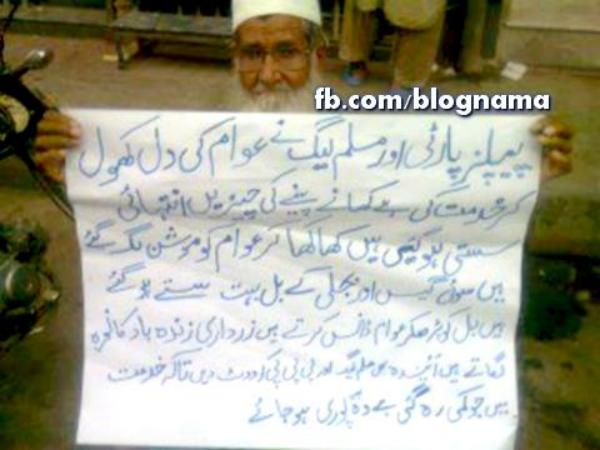 fb.com/blognama
پیپلز پارٹی اور مسلم لیگ نے عوام کی دل کھول
کر خدمت کی ہے کھانے پینے کی چیزیں انتہائی
سستی ہو گئیں ہیں کھا کھا کر عوام کو موشن لگ گئے
ہیں سوئی گیس اور بجلی کے بل بہت سستے ہو گئے
ہیں بل کو پڑھ کر عوام ڈانس کرتے ہیں زرداری زندہ باد کا نعرہ
لگاتے ہیں آئیندہ بھی مسلم لیگ اور پی پی پی کو ووٹ دیں تاکہ خدمت
میں جو کمی رہ گئی ہے وہ پوری ہو جائے